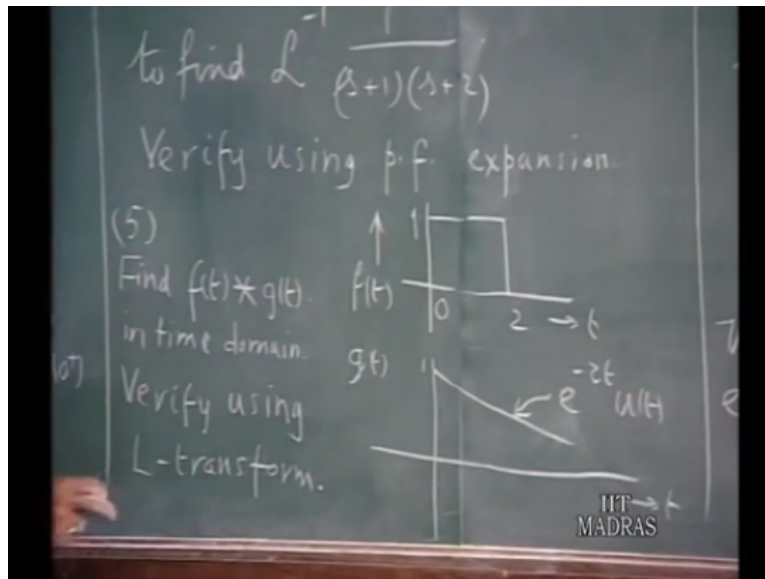 to find ℒ⁻¹ 1/((s+1)(s+2))
Verify using p.f. expansion.
(5)
Find f(t)*g(t).
in time domain.
Verify using
L-transform.
f(t)
1
0
2
→ t
g(t)
1
e^{-2t} u(t)
→ t
IIT
MADRAS